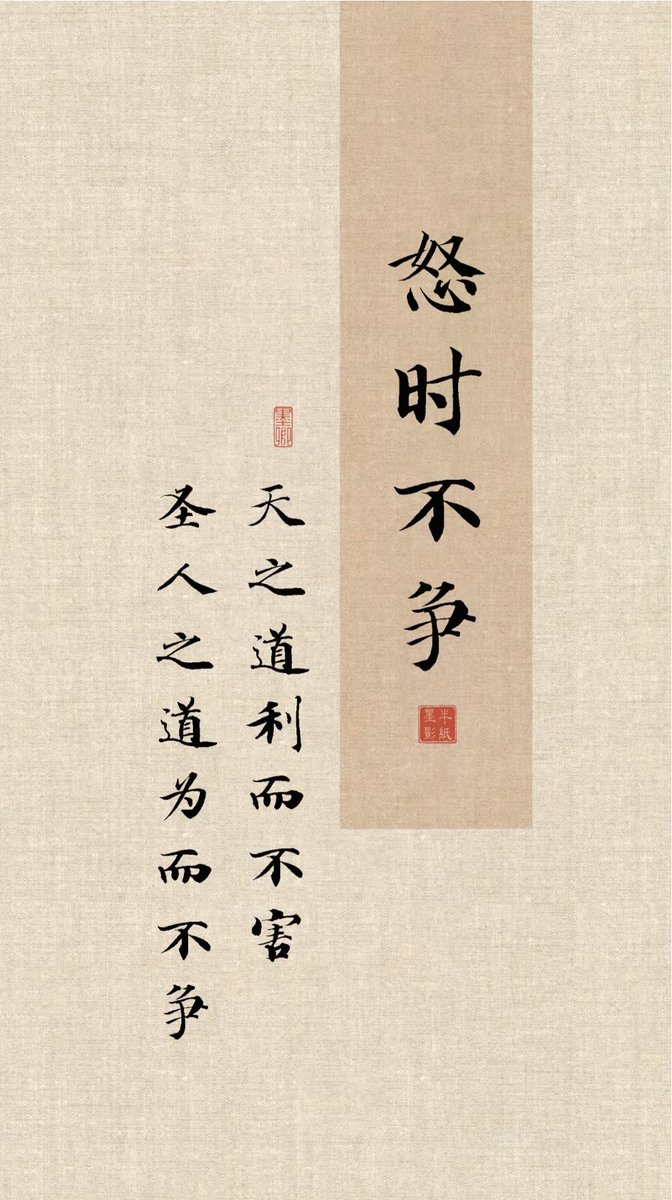 怒时不争
半纸墨影
墨卿
天之道利而不害
圣人之道为而不争